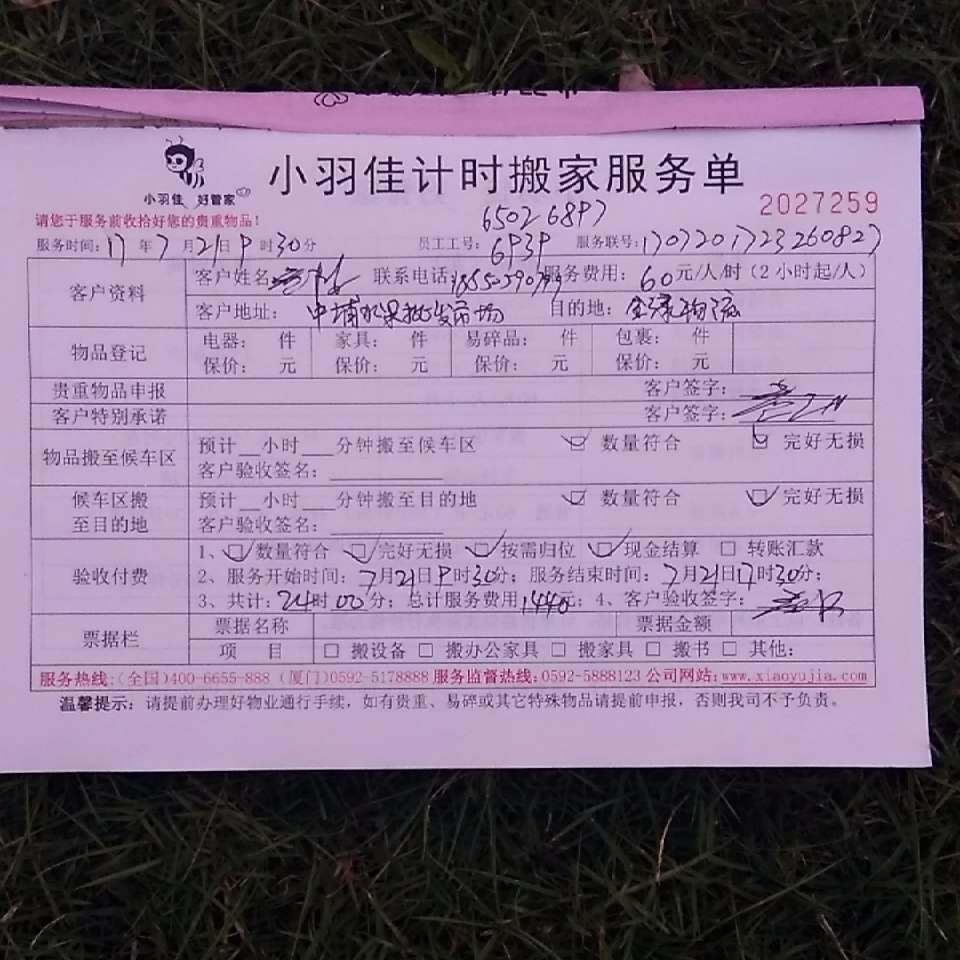 小羽佳 好管家
小羽佳计时搬家服务单
2027259
请您于服务前收拾好您的贵重物品!
65026897
服务时间: 17年7月21日9时30分 员工工号: 6939 服务联号: 1707201723260827
客户资料
客户姓名 联系电话: 服务费用: 60元/人/时(2小时起/人)
客户地址: 中埔水果批发市场 目的地: 全球物流
物品登记
电器: 件 家具: 件 易碎品: 件 包裹: 件
保价: 元 保价: 元 保价: 元 保价: 元
贵重物品申报 客户签字:
客户特别承诺 客户签字:
物品搬至候车区
预计__小时___分钟搬至候车区 数量符合 完好无损
客户验收签名:
候车区搬至目的地
预计__小时___分钟搬至目的地 数量符合 完好无损
客户验收签名:
验收付费
1、数量符合 完好无损 按需归位 现金结算 转账汇款
2、服务开始时间: 7月21日9时30分; 服务结束时间: 7月21日17时30分;
3、共计: 24时00分; 总计服务费用1440元; 4、客户验收签字:
票据栏
票据名称 票据金额
项 目 搬设备 搬办公家具 搬家具 搬书 其他:
服务热线:(全国)400-6655-888 (厦门)0592-5178888 服务监督热线:0592-5888123 公司网站:www.xiaoyujia.com
温馨提示: 请提前办理好物业通行手续,如有贵重、易碎或其它特殊物品请提前申报,否则我司不予负责。